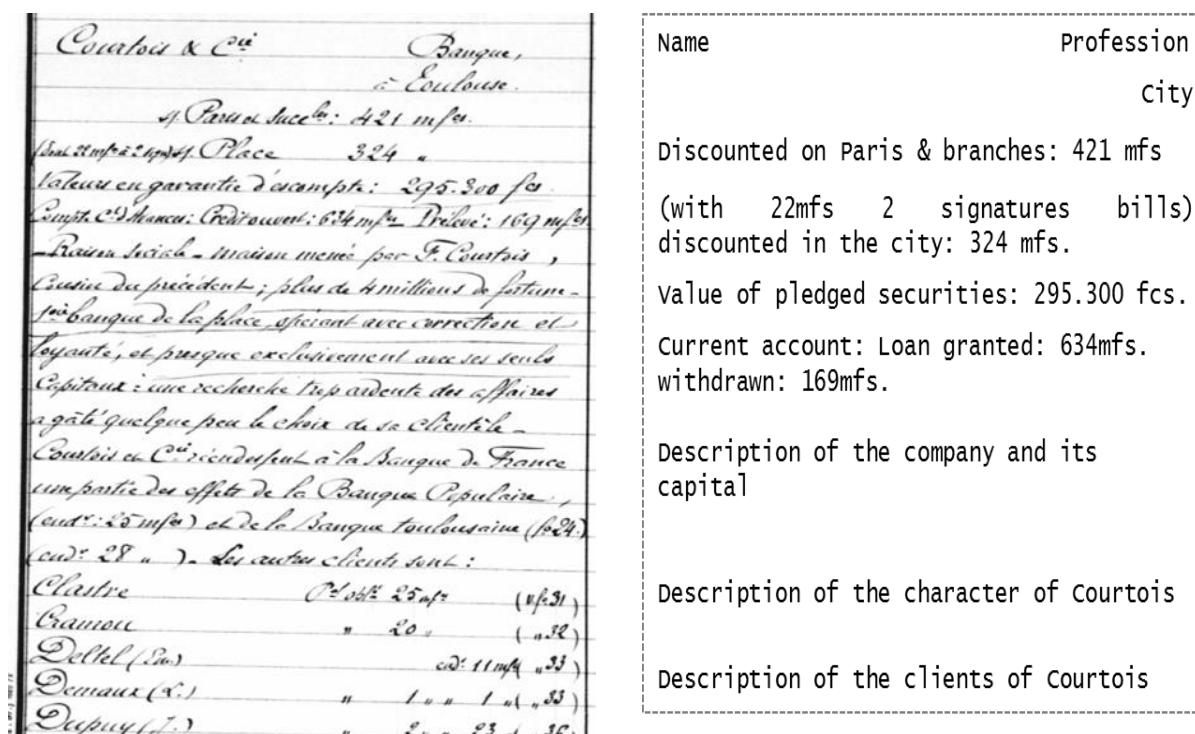 Courtois & Cie Banque,
à Toulouse.
s/ Paris et Succles: 421 mfcs.
(dont 22 mfs à 2 sign) s/ Place 324 "
Valeurs en garantie d'escompte: 295.300 fcs.
Compte Ct d'Avances: Crédit ouvert: 634 mfcs _ Prélevé: 169 mfcs
_ Raison sociale _ maison menée par F. Courtois,
cousin du précédent; plus de 4 millions de fortune _
1ère banque de la place, opérant avec correction et
loyauté, et presque exclusivement avec ses seuls
Capitaux: une recherche trop ardente des affaires
a gâté quelque peu le choix de sa clientèle _
Courtois et Cie réendossent à la Banque de France
une partie des effets de la Banque Populaire,
(endt: 25 mfcs) et de la Banque toulousaine (fo 24.)
(endt 28 " ). Les autres clients sont:
Clastre 25 mfs 31)
Cramou " 20 " ( " 32)
Deltel (Em.) 11 mfs ( " 33)
Demaux (L.) " 1 " " 1 " ( " 33)
Dupuy (J.) " 2 " " 23
Name Profession
City
Discounted on Paris & branches: 421 mfs
(with 22mfs 2 signatures bills)
discounted in the city: 324 mfs.
Value of pledged securities: 295.300 fcs.
Current account: Loan granted: 634mfs.
withdrawn: 169mfs.
Description of the company and its
capital
Description of the character of Courtois
Description of the clients of Courtois